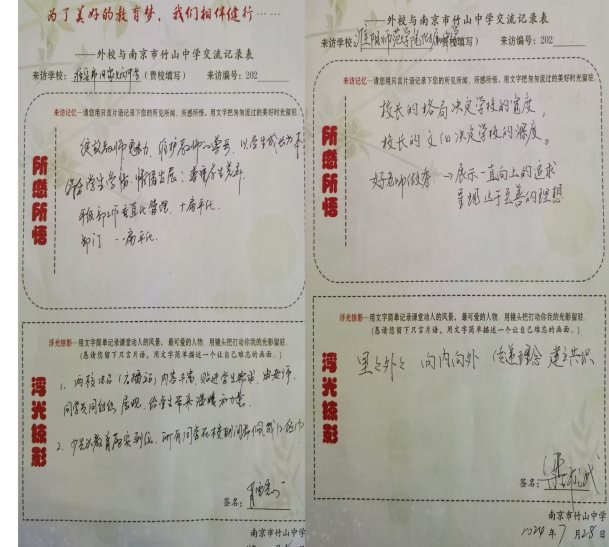 为了美好的教育梦，我们相伴健行……
——外校与南京市竹山中学交流记录表
来访学校：（贵校填写） 来访编号：202
来访记忆—请您用只言片语记录下您的所见所闻、所感所悟，用文字把匆匆流过的美好时光留驻.
所感所悟
绽放教师魅力，维护教师的尊严，以学生成长为本
学生学情
年级部工作垂直化管理，十扁平化.
部门 扁平化.
浮光掠影—用文字简单记录课堂动人的风景、最可爱的人物，用镜头把打动你我的光影留驻.
（恳请您留下只言片语，用文字简单描述一个让自己难忘的画面。）
浮光掠影
1、两校 （广播站）内容丰富，贴近学生需求，由老师、
同学共同 展现，给学生带来温暖和力量.
2、少先队教育落实到位，所有同学在校期间都佩戴红领巾
签名：
南京市竹山中学
——外校与南京市竹山中学交流记录表
来访学校：淮阴师范学院附属中学（贵校填写） 来访编号：202
来访记忆—请您用只言片语记录下您的所见所闻、所感所悟，用文字把匆匆流过的美好时光留驻.
所感所悟
校长的格局决定学校的宽度
校长的文化决定学校的深度。
好老师优秀→展示一直向上的追求
呈现达于至善的理想
浮光掠影—用文字简单记录课堂动人的风景、最可爱的人物，用镜头把打动你我的光影留驻.
（恳请您留下只言片语，用文字简单描述一个让自己难忘的画面。）
浮光掠影
里里外外 向内向外 传递理念 建立共识
签名：
南京市竹山中学
2024年7月28日